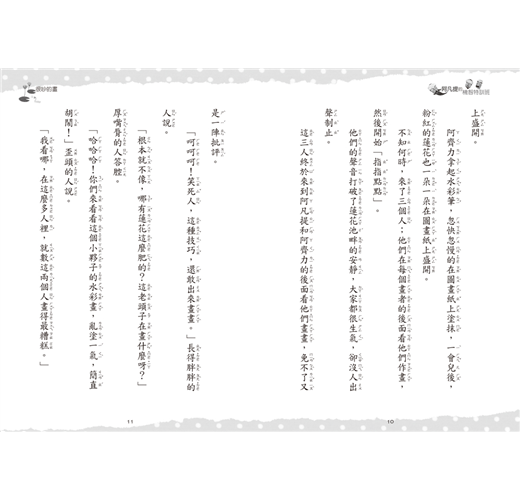 阿凡提的機智特訓班
上盛開。
阿齊力拿起水彩筆，忽快忽慢的在圖畫紙上塗抹，一會兒後，
粉紅的蓮花也一朵一朵在圖畫紙上盛開。
不知何時，來了三個人；他們在每個畫者的後面看他們作畫，
然後開始「指指點點」。
他們的聲音打破了蓮花池畔的安靜，大家都很生氣，卻沒人出
聲制止。
這三人終於來到阿凡提和阿齊力的後面看他們畫畫，免不了又
10
很妙的畫
是一陣批評。
「呵呵呵！笑死人，這種技巧，還敢出來畫畫。」長得胖胖的
人說。
「根本就不像，哪有蓮花這麼肥的？這老頭子在畫什麼呀？」
厚嘴脣的人答腔。
「哈哈哈！你們來看看這個小夥子的水彩畫，亂塗一氣，簡直
胡鬧！」歪頭的人說。
「我看哪，在這麼多人裡，就數這兩個人畫得最糟糕。」
11